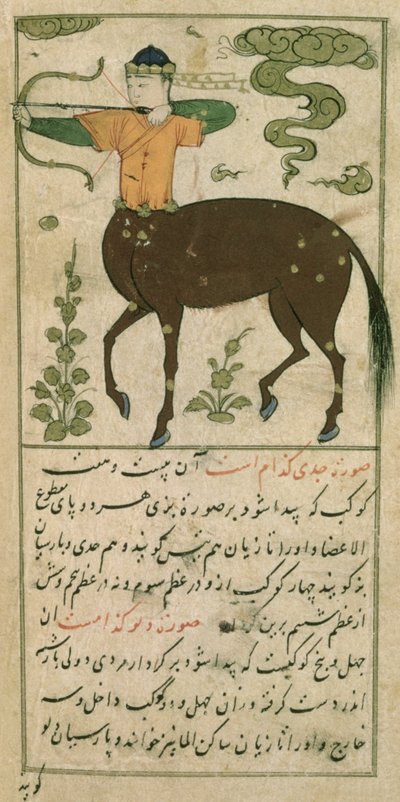 صورة جدی کدام است آن بیست و هفت
کوکب که پیدا شود بر صورة بزی هر دو پای مقطوع
الاعضا و او را تازیان هم تیس گویند و هم جدی و پارسیان
بز گویند چهار کوکب ازو در عظم سوم و نه در عظم پنجم و شش
از عظم ششم برین کردار صورة دلو کدامست آن
چهل و پنج کوکبست که پیدا شود بر کردار مردی دولی بازشیم
اندر دست گرفته و زان چهل و دو کوکب داخل و سه
خارج و او را تازیان ساکن الما نیز خوانند و پارسیان دلو
گویند